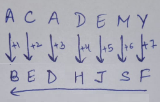 A C A D E M Y
+1 +2 +3 +4 +5 +6 +7
B E D H J S F